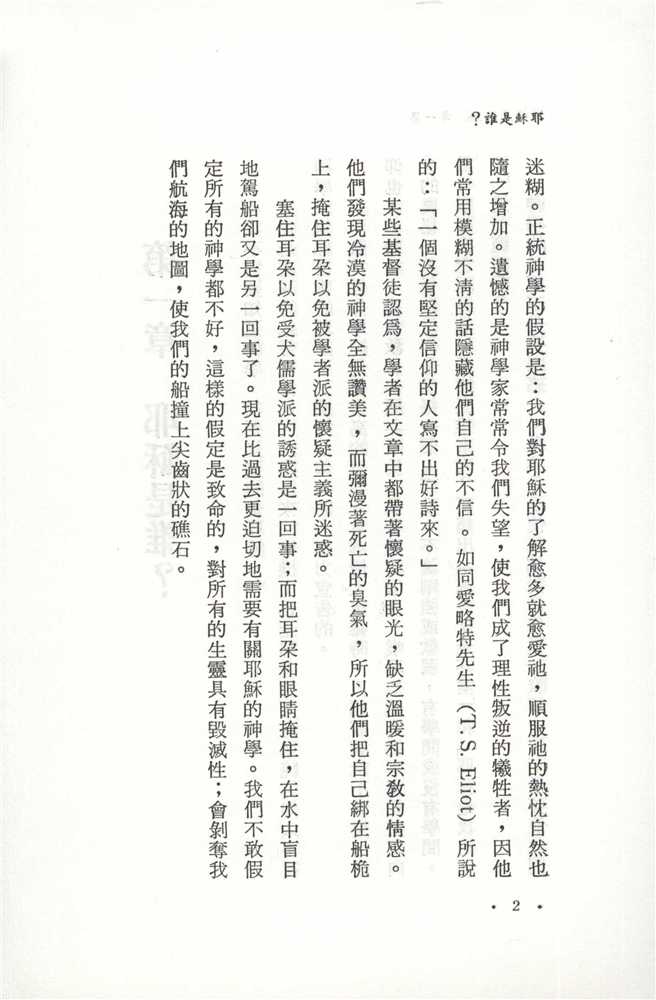 耶穌是誰？
迷糊。正統神學的假設是：我們對耶穌的了解愈多就愈愛祂，順服祂的熱忱自然也
隨之增加。遺憾的是神學家常常令我們失望，使我們成了理性叛逆的犧牲者，因他
們常用模糊不清的話隱藏他們自己的不信。如同愛略特先生（T. S. Eliot）所說
的：「一個沒有堅定信仰的人寫不出好詩來。」
某些基督徒認為，學者在文章中都帶著懷疑的眼光，缺乏溫暖和宗教的情感。
他們發現冷漠的神學全無讚美，而彌漫著死亡的臭氣，所以他們把自己綁在船桅
上，掩住耳朶以免被學者派的懷疑主義所迷惑。
塞住耳朶以免受犬儒學派的誘惑是一回事；而把耳朶和眼睛掩住，在水中盲目
地駕船卻又是另一回事了。現在比過去更迫切地需要有關耶穌的神學。我們不敢假
定所有的神學都不好，這樣的假定是致命的，對所有的生靈具有毀滅性；會剝奪我
們航海的地圖，使我們的船撞上尖齒狀的礁石。
• 2 •